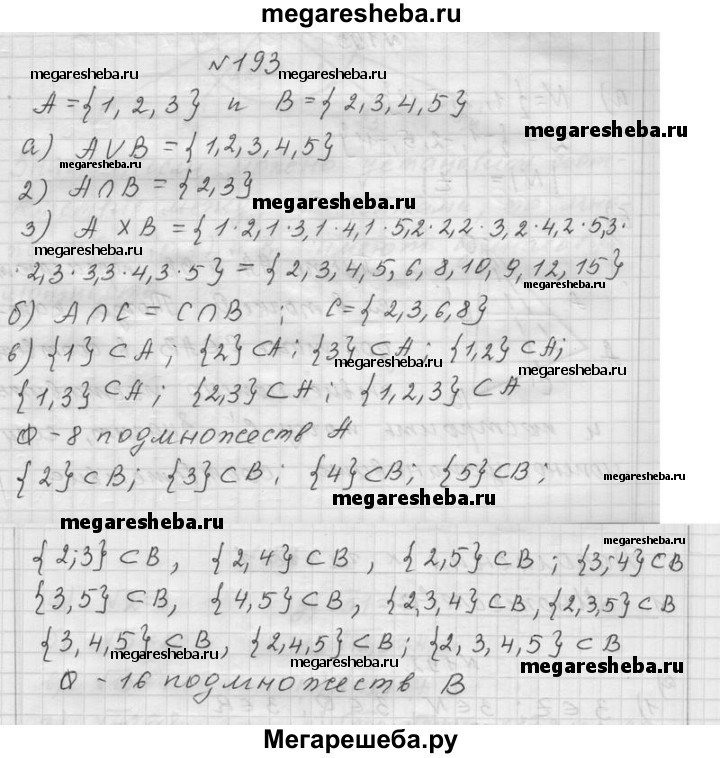 megaresheba.ru
№193
megaresheba.ru megaresheba.ru
A = {1, 2, 3} и B = {2,3,4,5}
megaresheba.ru
а) A∪B = {1,2,3,4,5}
megaresheba.ru
2) A∩B = {2,3}
megaresheba.ru
3) A × B = {1·2,1·3,1·4,1·5,2·2,2·3,2·4,2·5,3·
megaresheba.ru
·2,3·3,3·4,3·5} = {2,3,4,5,6,8,10,9,12,15}
megaresheba.ru
б) A∩C = C∩B ; C={2,3,6,8}
megaresheba.ru
в) {1} ⊂ A; {2} ⊂ A; {3} ⊂ A; {1,2} ⊂ A;
megaresheba.ru
megaresheba.ru
{1,3} ⊂ A; {2,3} ⊂ A; {1,2,3} ⊂ A
Ф - 8 подмножеств A
megaresheba.ru
{2} ⊂ B; {3} ⊂ B; {4} ⊂ B; {5} ⊂ B;
megaresheba.ru
megaresheba.ru
megaresheba.ru
{2;3} ⊂ B, {2,4} ⊂ B, {2,5} ⊂ B; {3;4} ⊂ B
{3,5} ⊂ B, {4,5} ⊂ B, {2,3,4} ⊂ B, {2,3,5} ⊂ B
{3,4,5} ⊂ B, {2,4,5} ⊂ B; {2,3,4,5} ⊂ B
megaresheba.ru megaresheba.ru megaresheba.ru
Ф - 16 подмножеств B
Мегарешеба.ру